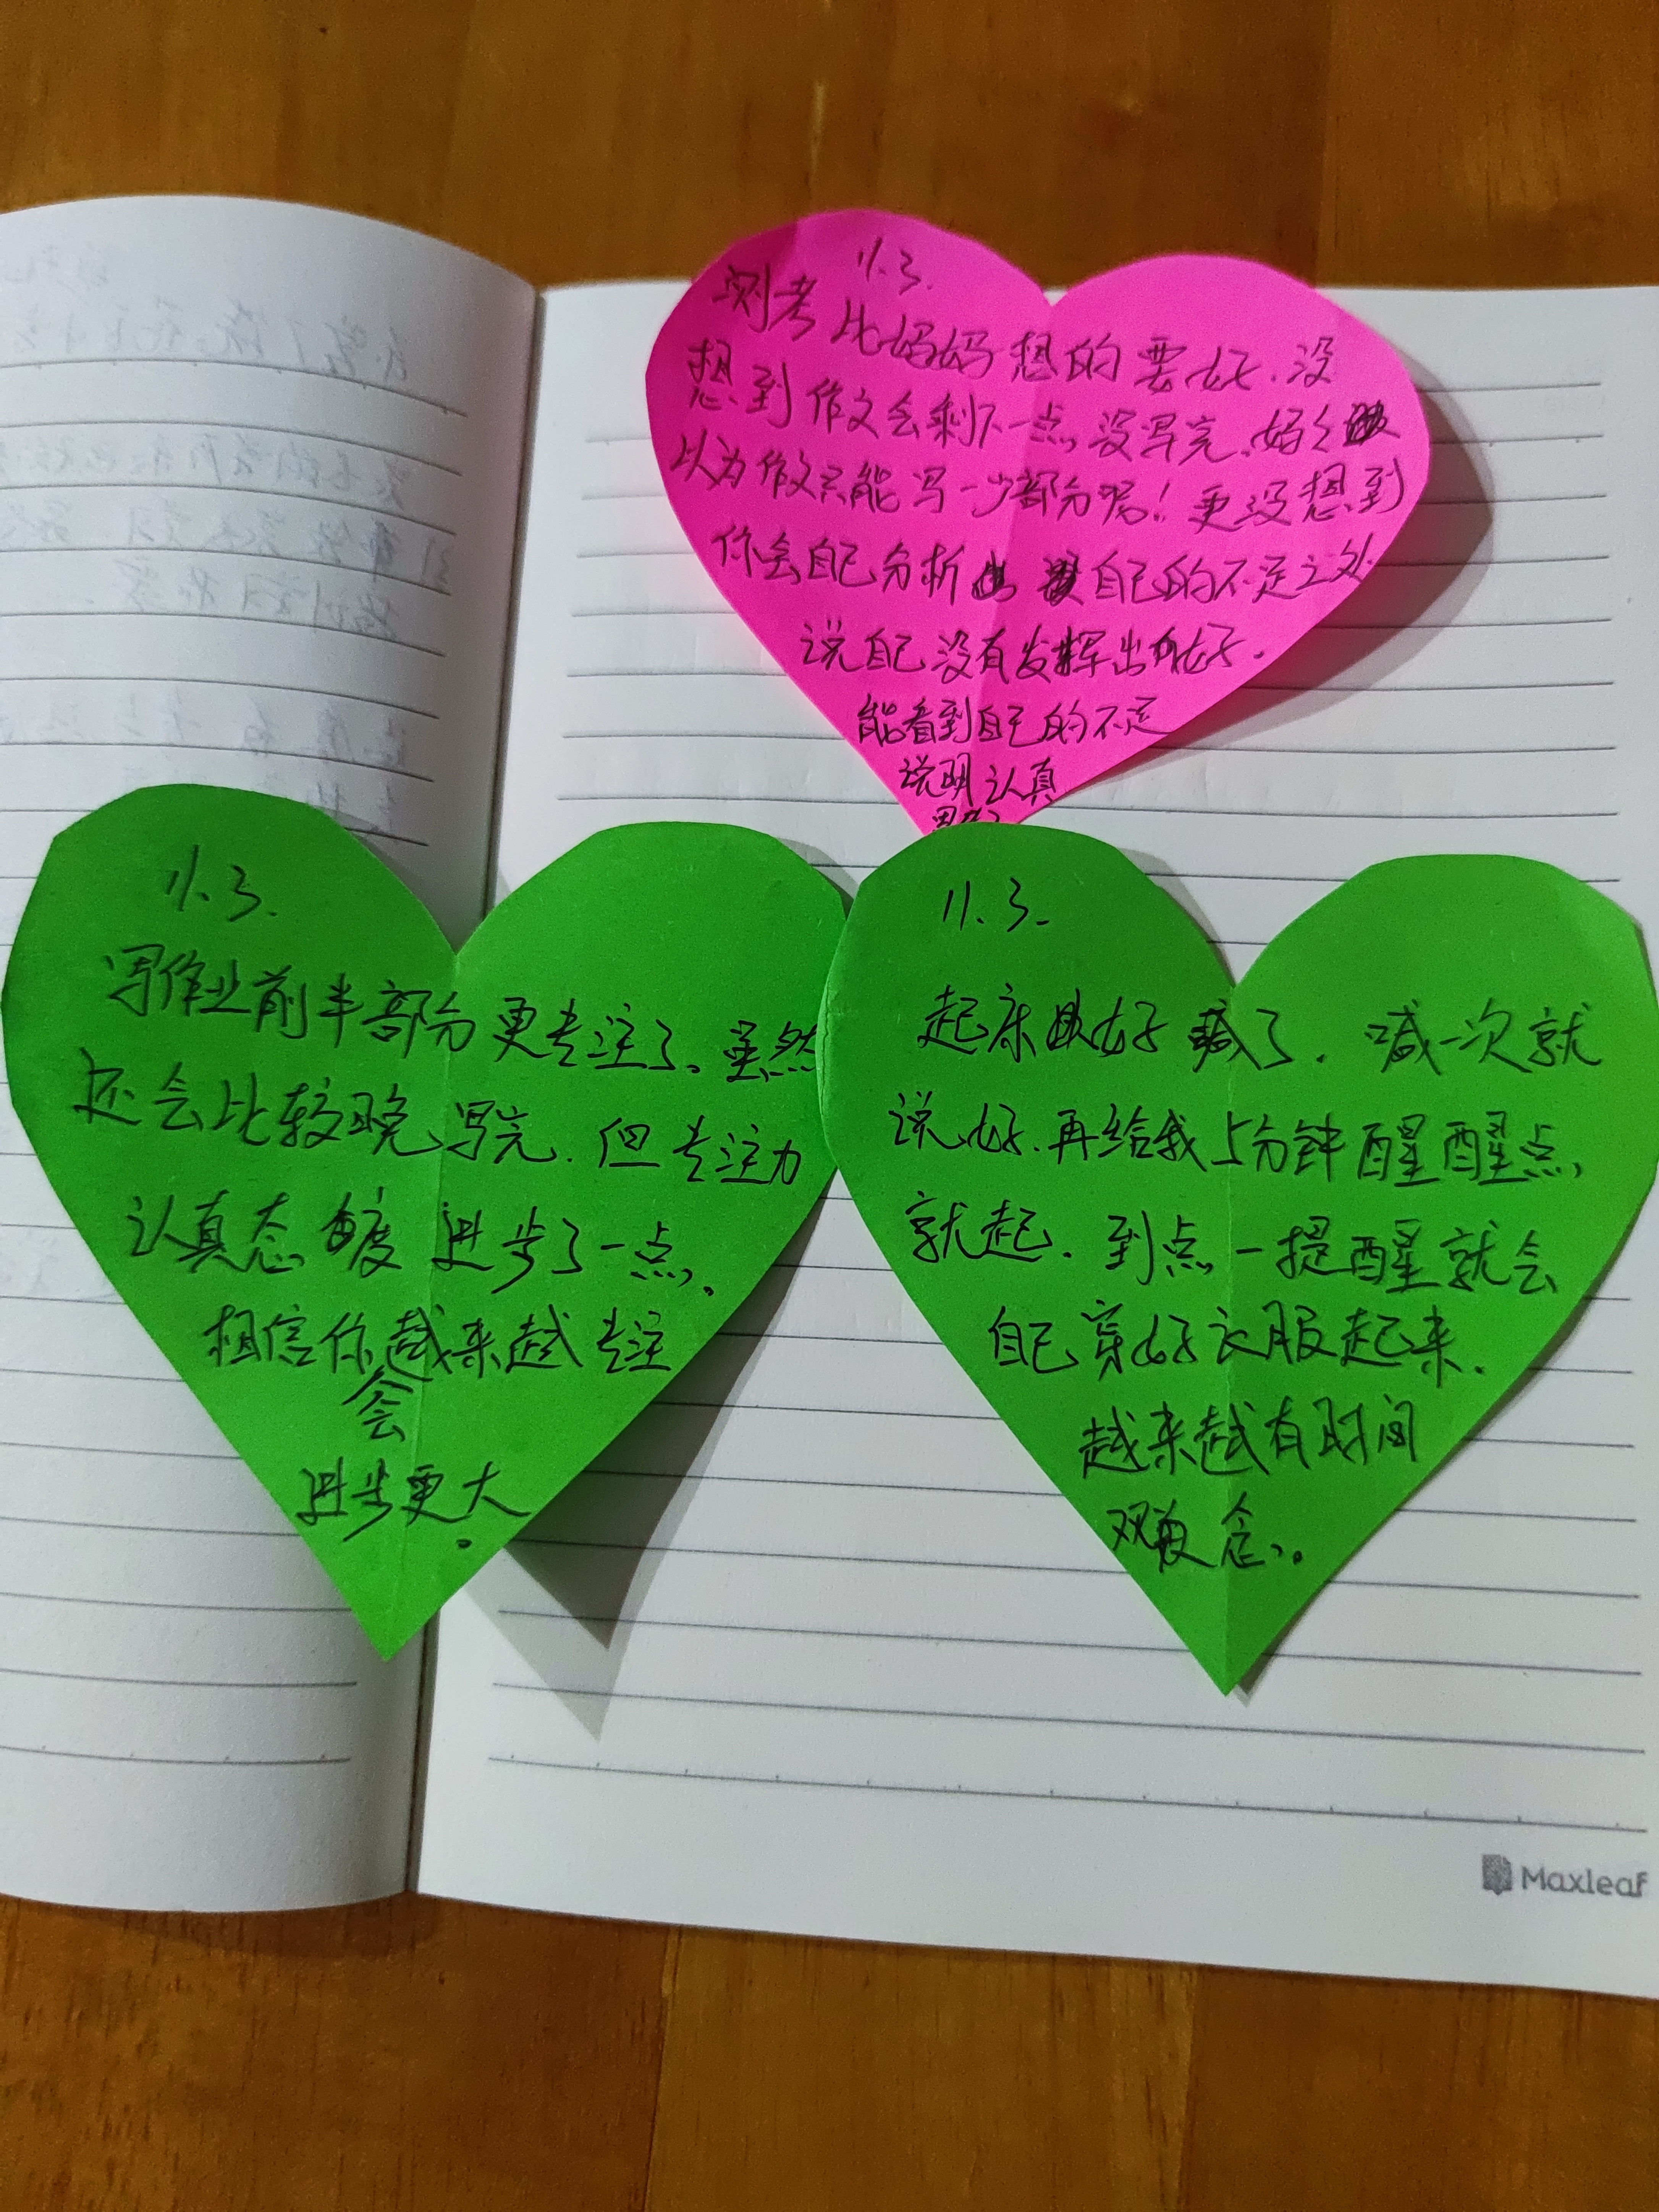 11.3.
测考比妈妈想的要好.没
想到作文会剩下一点没写完.妈々
以为作文只能写一少部分呢!更没想到
你会自己分析出自己的不足之处
说自己没有发挥出好.
能看到自己的不足
说明认真
11.3.
写作业前半部分更专注了。虽然
还会比较晚写完.但专注力
认真态度进步了一点.
相信你会越来越专注
进步更大。
11.3.
起床好喊了.喊一次就
说好.再给我5分钟醒醒点
就起.到点一提醒就会
自己穿好衣服起来.
越来越有时间
观念.。
Maxleaf